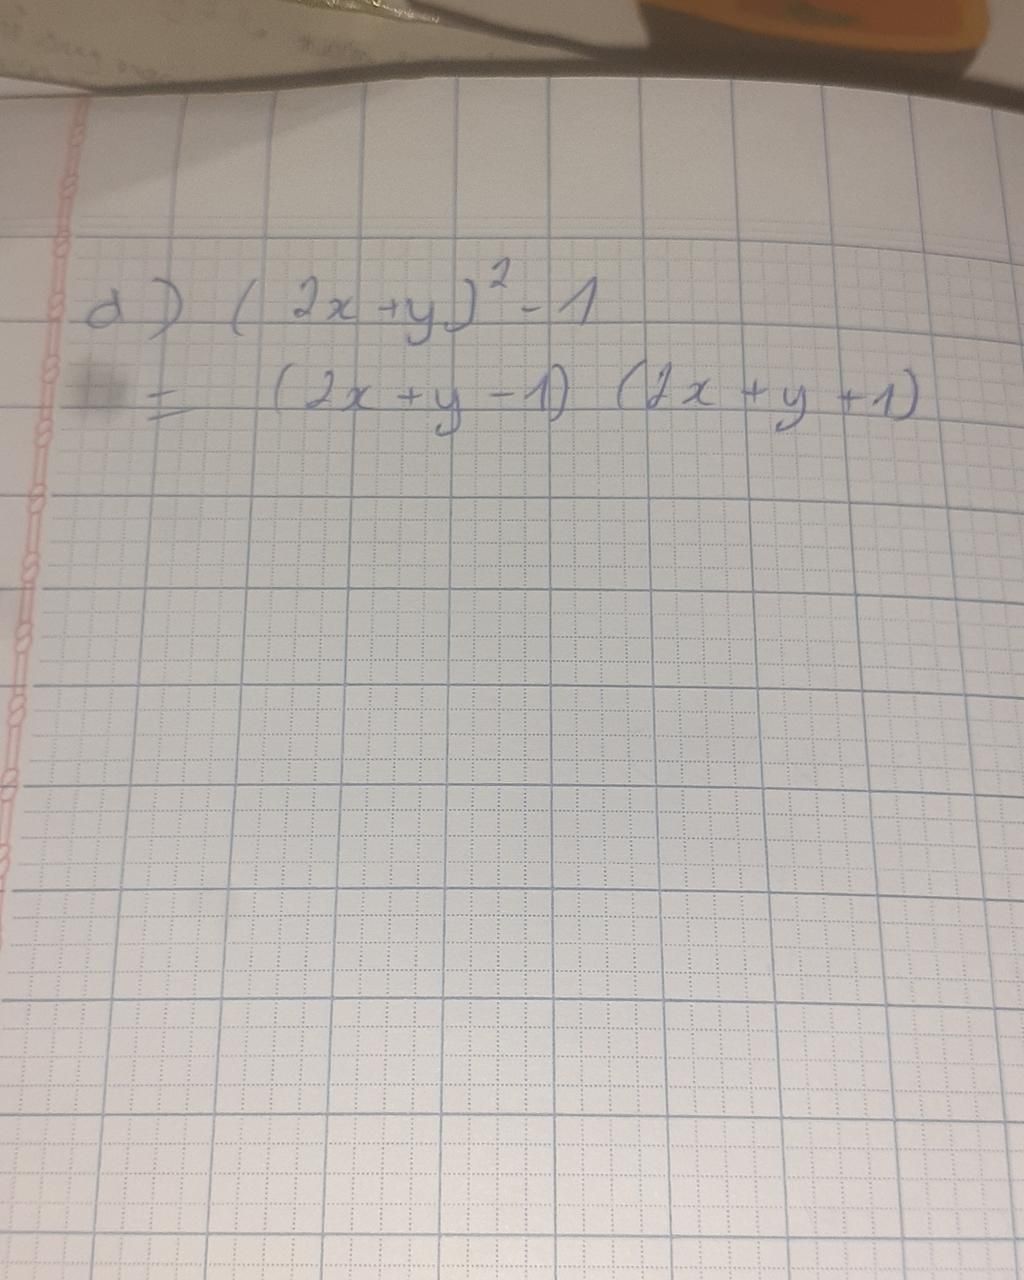 d) (2x+y)² - 1
= (2x+y-1) (2x+y+1)